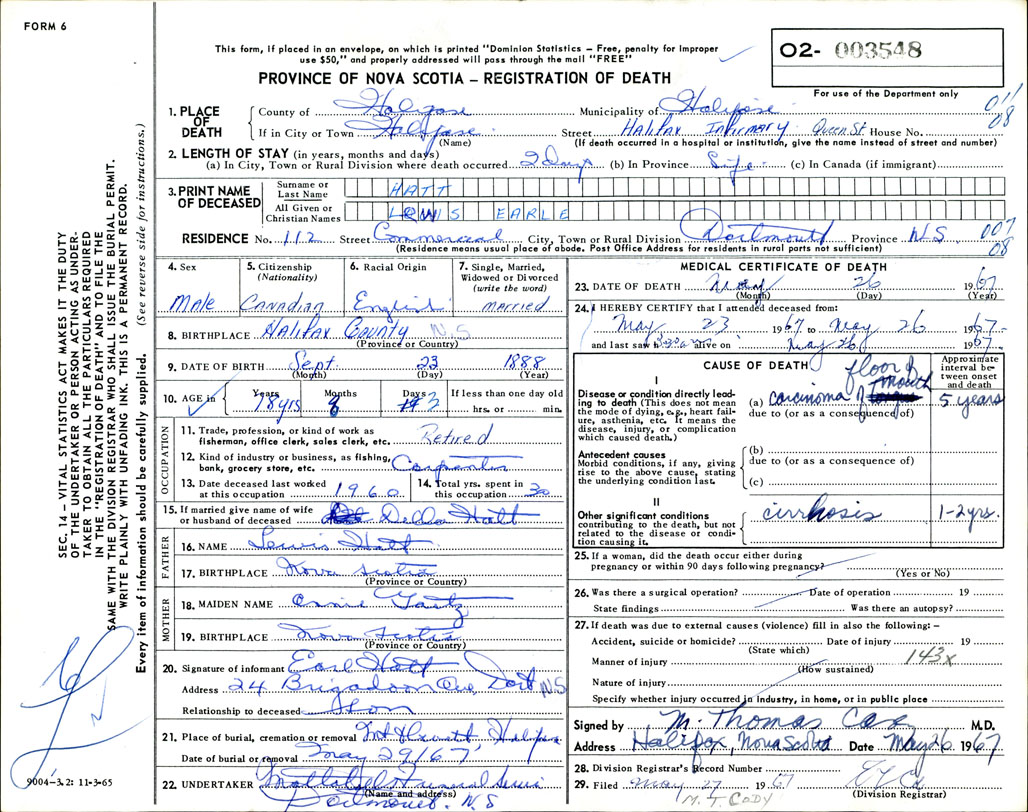 FORM 6
This form, if placed in an envelope, on which is printed "Dominion Statistics – Free, penalty for improper
use $50," and properly addressed will pass through the mail "FREE"
PROVINCE OF NOVA SCOTIA – REGISTRATION OF DEATH
02- 003548
For use of the Department only
011
08
1. PLACE OF DEATH
County of Halifax Municipality of Halifax
If in City or Town Halifax Street Halifax Infirmary Queen St House No.
(Name) (If death occurred in a hospital or institution, give the name instead of street and number)
2. LENGTH OF STAY (in years, months and days)
(a) In City, Town or Rural Division where death occurred 2 Days (b) In Province Life (c) In Canada (if immigrant)
3. PRINT NAME OF DECEASED
Surname or Last Name HATT
All Given or Christian Names LEWIS EARLE
RESIDENCE No. 112 Street Commercial City, Town or Rural Division Dartmouth Province N.S. 007
08
(Residence means usual place of abode. Post Office Address for residents in rural parts not sufficient)
4. Sex
Male
5. Citizenship (Nationality)
Canadian
6. Racial Origin
English
7. Single, Married, Widowed or Divorced (write the word)
married
8. BIRTHPLACE Halifax County N.S
(Province or Country)
9. DATE OF BIRTH Sept 23 1888
(Month) (Day) (Year)
10. AGE in Years Months Days If less than one day old
78yrs 8 3 hrs. or min.
OCCUPATION
11. Trade, profession, or kind of work as fisherman, office clerk, sales clerk, etc. Retired
12. Kind of industry or business, as fishing, bank, grocery store, etc. Carpenter
13. Date deceased last worked at this occupation 1960 14. Total yrs. spent in this occupation 30
15. If married give name of wife or husband of deceased Della Hatt
FATHER
16. NAME Lewis Hatt
17. BIRTHPLACE Nova Scotia
(Province or Country)
MOTHER
18. MAIDEN NAME Annie Gaetz
19. BIRTHPLACE Nova Scotia
(Province or Country)
20. Signature of informant Earl Hatt
Address 24 Brigadoon Ave Dart N.S
Relationship to deceased Son
21. Place of burial, cremation or removal Halifax
Date of burial or removal May 29/67
22. UNDERTAKER Funeral
(Name and address)
Dartmouth N.S
MEDICAL CERTIFICATE OF DEATH
23. DATE OF DEATH May 26 1967
(Month) (Day) (Year)
24. I HEREBY CERTIFY that I attended deceased from:
May 23 1967 to May 26 1967
and last saw h alive on May 26 1967
CAUSE OF DEATH
Approximate interval between onset and death
I
Disease or condition directly leading to death (This does not mean the mode of dying, e.g., heart failure, asthenia, etc. It means the disease, injury, or complication which caused death.)
(a) Carcinoma of floor of mouth 5 years
due to (or as a consequence of)
Antecedent causes
Morbid conditions, if any, giving rise to the above cause, stating the underlying condition last.
(b)
due to (or as a consequence of)
(c)
II
Other significant conditions
contributing to the death, but not related to the disease or condition causing it.
cirrhosis 1-2 yrs.
25. If a woman, did the death occur either during
pregnancy or within 90 days following pregnancy?
(Yes or No)
26. Was there a surgical operation? Date of operation 19
State findings Was there an autopsy?
27. If death was due to external causes (violence) fill in also the following: –
Accident, suicide or homicide? Date of injury 19
(State which)
Manner of injury 143x
(How sustained)
Nature of injury
Specify whether injury occurred in industry, in home, or in public place
Signed by M. Thomas Casey M.D.
Address Halifax, Nova Scotia Date May 26 1967
28. Division Registrar's Record Number
29. Filed May 27 1967
(Division Registrar)
M. T. CODY
SEC. 14 – VITAL STATISTICS ACT MAKES IT THE DUTY
OF THE UNDERTAKER OR PERSON ACTING AS UNDER-
TAKER TO OBTAIN ALL THE PARTICULARS REQUIRED
IN THE "REGISTRATION OF DEATH" AND TO FILE THE
SAME WITH THE DIVISION REGISTRAR WHO SHALL ISSUE THE BURIAL PERMIT.
WRITE PLAINLY WITH UNFADING INK. THIS IS A PERMANENT RECORD.
Every item of information should be carefully supplied. (See reverse side for instructions.)
9004-3.2: 11-3-65